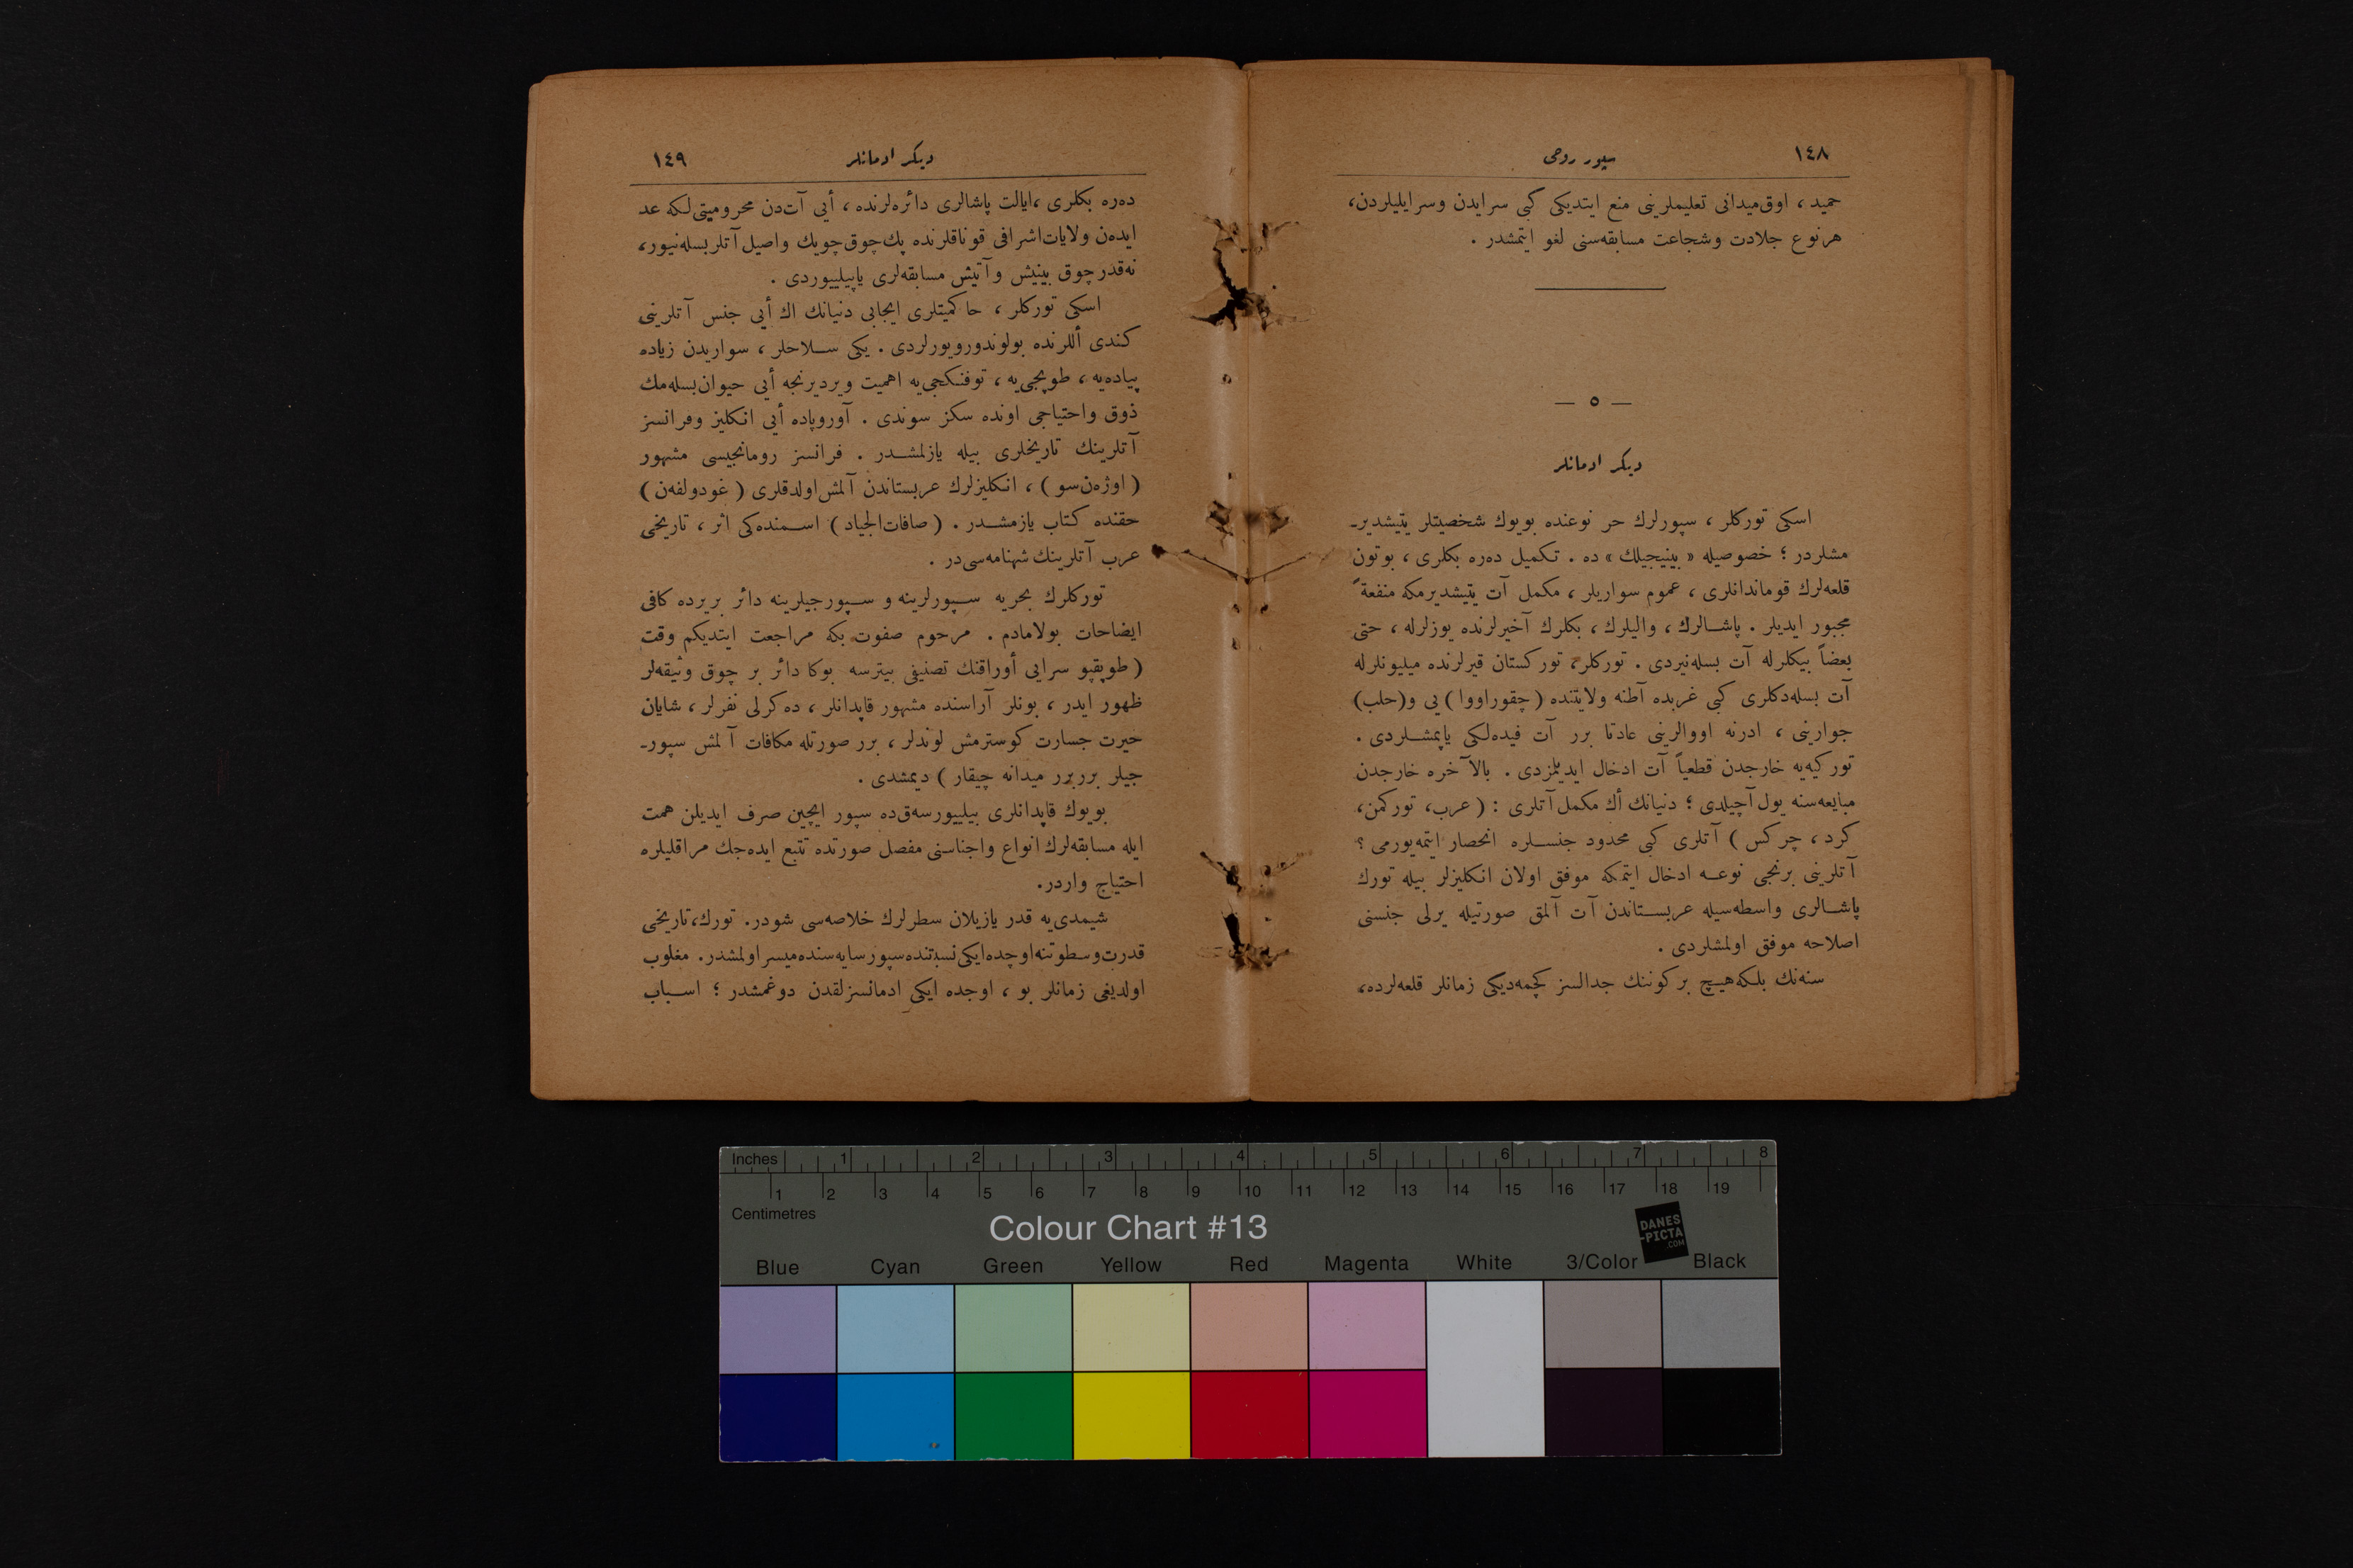 ١٤٨
سپور روحی
حمید ، اوق‌میدانی تعلیملرینی منع ایتدیكی كبی سرایدن وسرایلیلردن،
هرنوع جلادت وشجاعت مسابقه‌سنی لغو ایتمشدر .
— ٥ —
دیكر ادمانلر
اسكی توركلر ، سپورلرك حر نوعنده بویوك شخصیتلر یتیشدیر‌ـ
مشلردر ؛ خصوصیله « بینیجیلك » ده . تكمیل ده‌ره بكلری ، بوتون
قلعه‌لرك قوماندانلری ، عموم سواریلر ، مكمل آت یتیشدیرمكه منفعةً
مجبور ایدیلر . پاشـالرك ، والیلرك ، بكلرك آخیرلرنده یوزلرله ، حتی
بعضاً بیكلرله آت بسله‌نیردی . توركلر، توركستان قیرلرنده میلیونلرله
آت بسله‌دكلری كبی غربده آطنه ولایتنده ( چقوراووا ) یی و(حلب)
جوارینی ، ادرنه اووالرینی عادتا برر آت فیده‌لكی یاپمشـلردی .
توركیه‌یه خارجدن قطعیاً آت ادخال ایدیلمزدی . بالآخره خارجدن
مبایعه‌سنه یول آچیلدی ؛ دنیانك أك مكمل آتلری : ( عرب، توركمن،
كرد ، چركس ) آتلری كبی محدود جنسـلره انحصار ایتمه‌یورمی ؟
آتلرینی برنجی نوعـه ادخال ایتمكه موفق اولان انكلیزلر بیله تورك
پاشـالری واسطه‌سیله عربسـتاندن آت آلمق صورتیله یرلی جنسنی
اصلاحه موفق اولمشلردی .
سنه‌نك بلكه‌هیـچ بر كوننك جدالسز كچمه‌دیكی زمانلر قلعه‌لرده،
دیكر ادمانلر
١٤٩
ده‌ره بكلری ،ایالت پاشالری دائره‌لرنده ، أیی آت‌دن محرومیتی‌لكه عد
ایده‌ن ولایات‌اشرافی قوناقلرنده پك‌چوق‌چویك واصیل آتلر‌بسله‌نیور،
نه‌قدر چوق بینیش و آتیش مسابقه‌لری یاپیلییوردی .
اسكی توركلر ، حاكمیتلری ایجابی دنیانك اك أیی جنس آتلرینی
كندی أللرنده بولوندورویورلردی . یكی سـلاحلر ، سواریدن زیاده
پیاده‌یه ، طوپجی‌یه ، توفنكجی‌یه اهمیت ویردیرنجه أیی حیوان‌بسله‌مك
ذوق واحتیاجی اونده سكز سوندی . آوروپاده أیی انكلیز وفرانسز
آتلرینك تاریخلری بیله یازلمشـدر . فرانسز رومانجیسی مشهور
( اوژه‌ن‌سو ) ، انكلیزلرك عربستاندن آلمش‌اولدقلری ( غودولفه‌ن )
حقنده كتاب یازمشـدر . ( صافات‌الجیاد ) اسـمنده‌كی اثر ، تاریخی
عرب آتلرینك شهنامه‌سی‌در .
توركلرك بحریه سـپورلرینه و سـپورجیلرینه دائر بریرده كافی
ایضاحات بولامادم . مرحوم صفوت بكه مراجعت ایتدیكم وقت
( طوپقپو سرایی أوراقنك تصنیفی بیترسه بوكا دائر بر چوق وثیقه‌لر
ظهور ایدر ، بونلر آراسنده مشهور قاپدانلر ، ده‌كرلی نفرلر ، شایان
حیرت جسارت كوسترمش لوندلر ، برر صورتله مكافات آلمش سپور‌ـ
جیلر برربرر میدانه چیقار ) دیمشدی .
بویوك قاپدانلری بیلییورسه‌ق‌ده سپور ایچین صرف ایدیلن همت
ایله مسابقه‌لرك انواع واجناسنی مفصل صورتده تتبع ایده‌جك مراقلیلره
احتیاج واردر.
شیمدی‌یه قدر یازیلان سطرلرك خلاصه‌سی شودر. تورك، تاریخی
قدرت‌وسطوتنه‌اوچده‌ایكی‌نسبتنده‌سپورسایه‌سنده‌میسر اولمشدر. مغلوب
اولدیغی زمانلر بو ، اوجده ایكی ادمانسزلقدن دوغمشدر ؛ اسـباب
Inches 1 2 3 4 5 6 7 8
1 2 3 4 5 6 7 8 9 10 11 12 13 14 15 16 17 18 19
Centimetres
Colour Chart #13
DANES
-PICTA
.COM
Blue Cyan Green Yellow Red Magenta White 3/Color Black